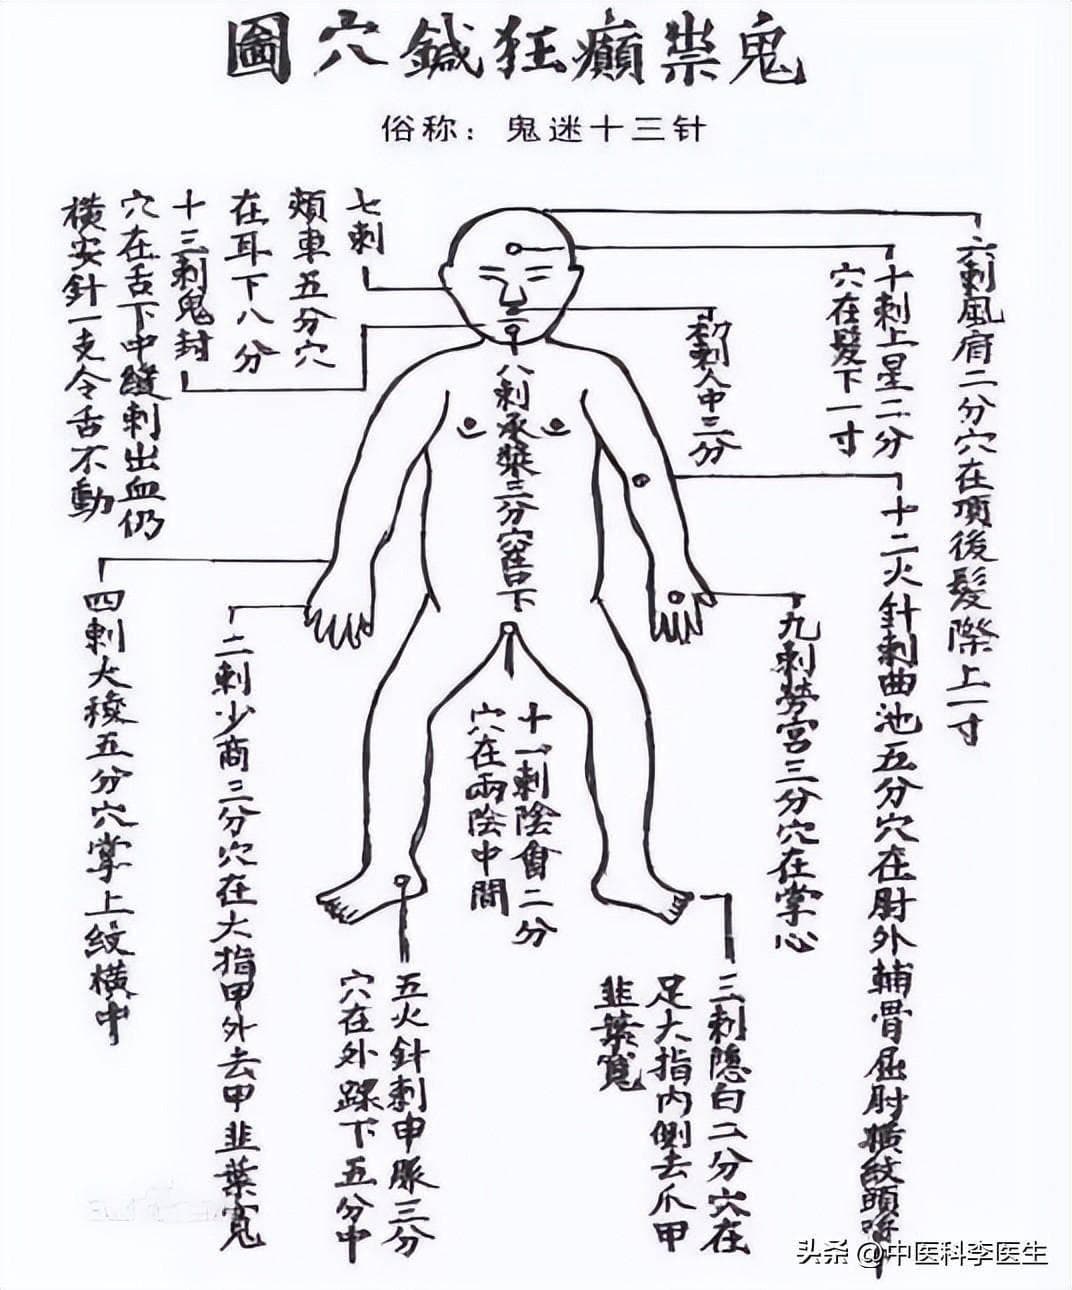 鬼祟癲狂鍼穴圖
俗称：鬼迷十三针
六刺風府二分穴在項後髮際上一寸
十刺上星二分
穴在髮下一寸
初刺人中三分
八刺承漿三分穴唇下
七刺
頰車五分穴
在耳下八分
十三刺鬼封
穴在舌下中縫刺出血仍
橫安針一支令舌不動
十二火針刺曲池五分穴在肘外輔骨屈肘橫紋頭
九刺勞宮三分穴在掌心
十一刺陰會二分
穴在兩陰中間
二刺少商三分穴在大指甲外去甲韭葉寬
四刺大稜五分穴掌上紋橫中
三刺隱白二分穴在
足大指內側去爪甲
韭葉寬
五火針刺申脈三分
穴在外踝下五分中
头条 @中医科李医生